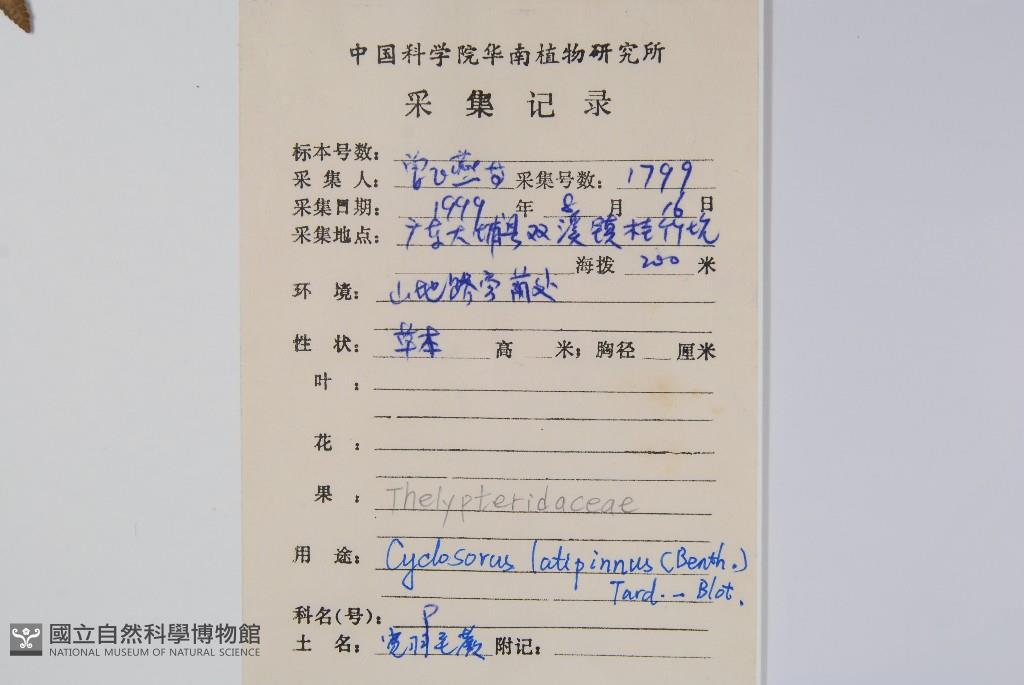 中国科学院华南植物研究所
采集记录
标本号数:
采集人: 曾飞燕等 采集号数: 1799
采集日期: 1999 年 8 月 16 日
采集地点: 广东大埔县双溪镇桂竹坑
海拨 200 米
环境: 山地路旁荫处
性状: 草本 高 米; 胸径 厘米
叶:
花:
果: Thelypteridaceae
用途: Cyclosorus latipinnus (Benth.)
Tard.-Blot.
科名(号): P
土名: 宽羽毛蕨 附记:
國立自然科學博物館
NATIONAL MUSEUM OF NATURAL SCIENCE